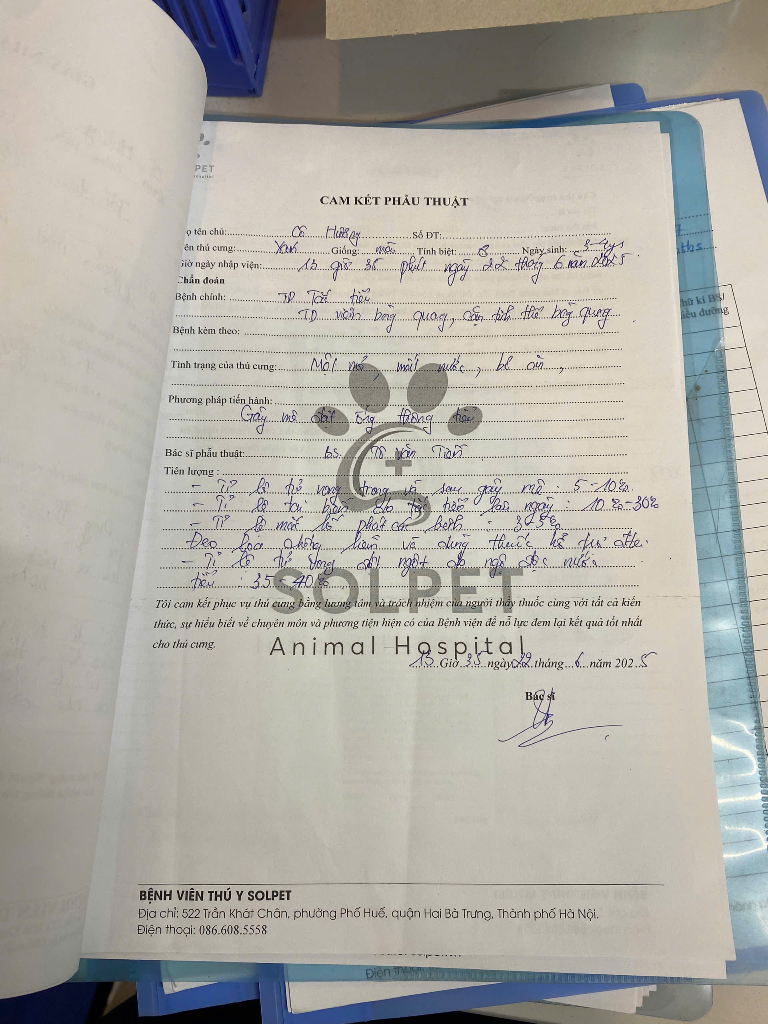 PET
CAM KẾT PHẪU THUẬT
ọ tên chủ: Cô Hương Số ĐT:
ên thú cưng: Giống: mèo Tính biệt: Ngày sinh:
Giờ ngày nhập viện: 13 giờ 35 phút ngày 22 tháng 6 năm 2025
Chẩn đoán
Bệnh chính: TD Tắc tiểu
TD viêm bàng quang, cặn tinh thể bàng quang
Bệnh kèm theo:
Tình trạng của thú cưng: Mệt mỏi, mất nước, bỏ ăn,
Phương pháp tiến hành:
Gây mê đặt ống thông tiểu
Bác sĩ phẫu thuật: BS.
Tiên lượng :
- Tỉ lệ tử vong trong và sau gây mê : 5-10%
- Tỉ lệ tai biến do tắc tiểu lâu ngày : 10%-30%
- Tỉ lệ phát bệnh : 3-5%
Đeo loa chống liếm và dùng thuốc
- Tỉ lệ tử vong đột ngột do ngộ độc nước
tiểu : 35-40%
SOLPET
Tôi cam kết phục vụ thú cưng bằng lương tâm và trách nhiệm của người thầy thuốc cùng với tất cả kiến
thức, sự hiểu biết về chuyên môn và phương tiện hiện có của Bệnh viện để nỗ lực đem lại kết quả tốt nhất
cho thú cưng.
Animal Hospital
13 Giờ 35 ngày 22 tháng 6 năm 2025
Bác sĩ
BỆNH VIÊN THÚ Y SOLPET
Địa chỉ: 522 Trần Khát Chân, phường Phố Huế, quận Hai Bà Trưng, Thành phố Hà Nội.
Điện thoại: 086.608.5558